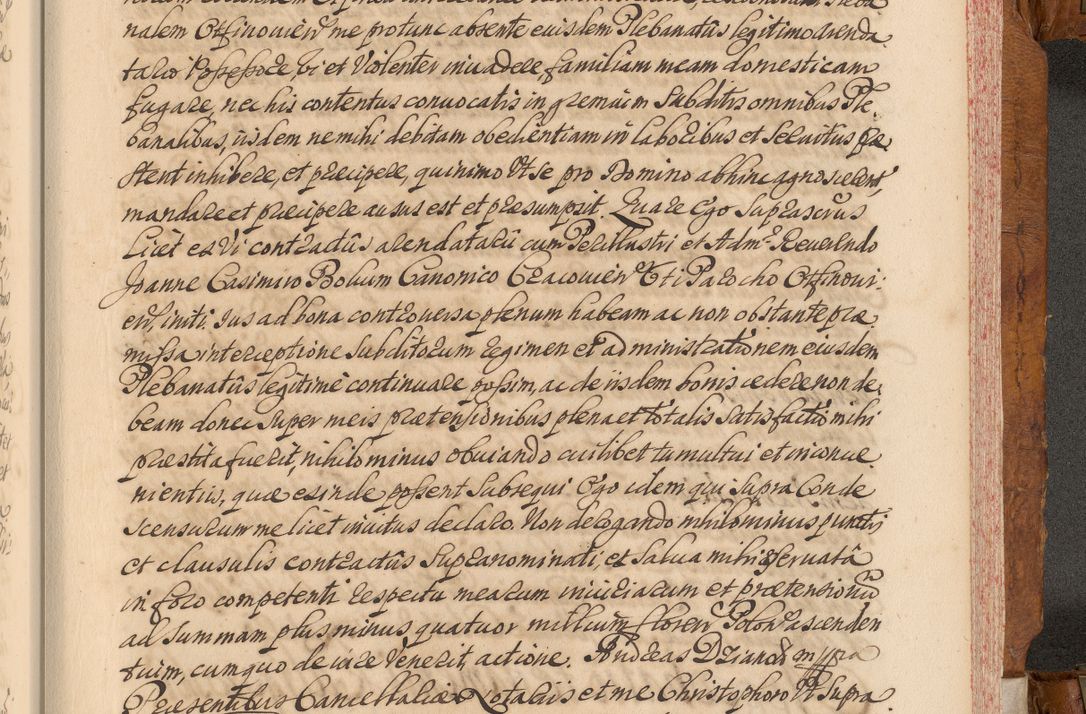 nalem Offinovien me protunc absente eiusdem Plebanatûs legitimo arenda
tario Possessore, vi et Violenter invadere familiam meam domesticam
fugare, nec his contentus convocatis in gremium Subditis omnibus Ple
banalibus, iisdem ne mihi debitam obedientiam in laboribus et Servitus præ
stent inhibere, et præcipere, quinimo Vt se pro Domino abhinc agnoscerent,
mandare et præcipere ausus est et præsumpsit. Quare Ego Suprascrus
Licet ex Vi contractûs arendatarii cum Perillustri et Adm. Reverendo
Joanne Casimiro Canonico Cracovien Parocho Offinovi:
en, initi. Jus ad bona controversa plenum habeam ac non obstante præ
missa interceptione Subditorum regimen et administrationem eiusdem
Plebanatûs legitimè continuare possim, ac de iisdem bonis cedere non de
beam donec Super meis prætensionibus plena et totalis Satisfactio mihi
præstita fuerit, nihilominus obviando cuilibet tumultui et inconve
nientiis, quæ exinde possent Subsequi Ego idem qui Supra Conde
Scensurum me licet invitus declaro. Non derogando nihilominus punctis
et clausulis contractûs Supranominati, et Salva mihi reservatâ
in foro competenti respectu mearum iniuriarum et prætensionũ
ad Summam plus minus quatuor millium floren Polon ascenden
tium, cumquo de iure Venerit, actione. Andreas mppra
Præsentibus Cancellariæ Notariis et me Christophoro Vt Supra